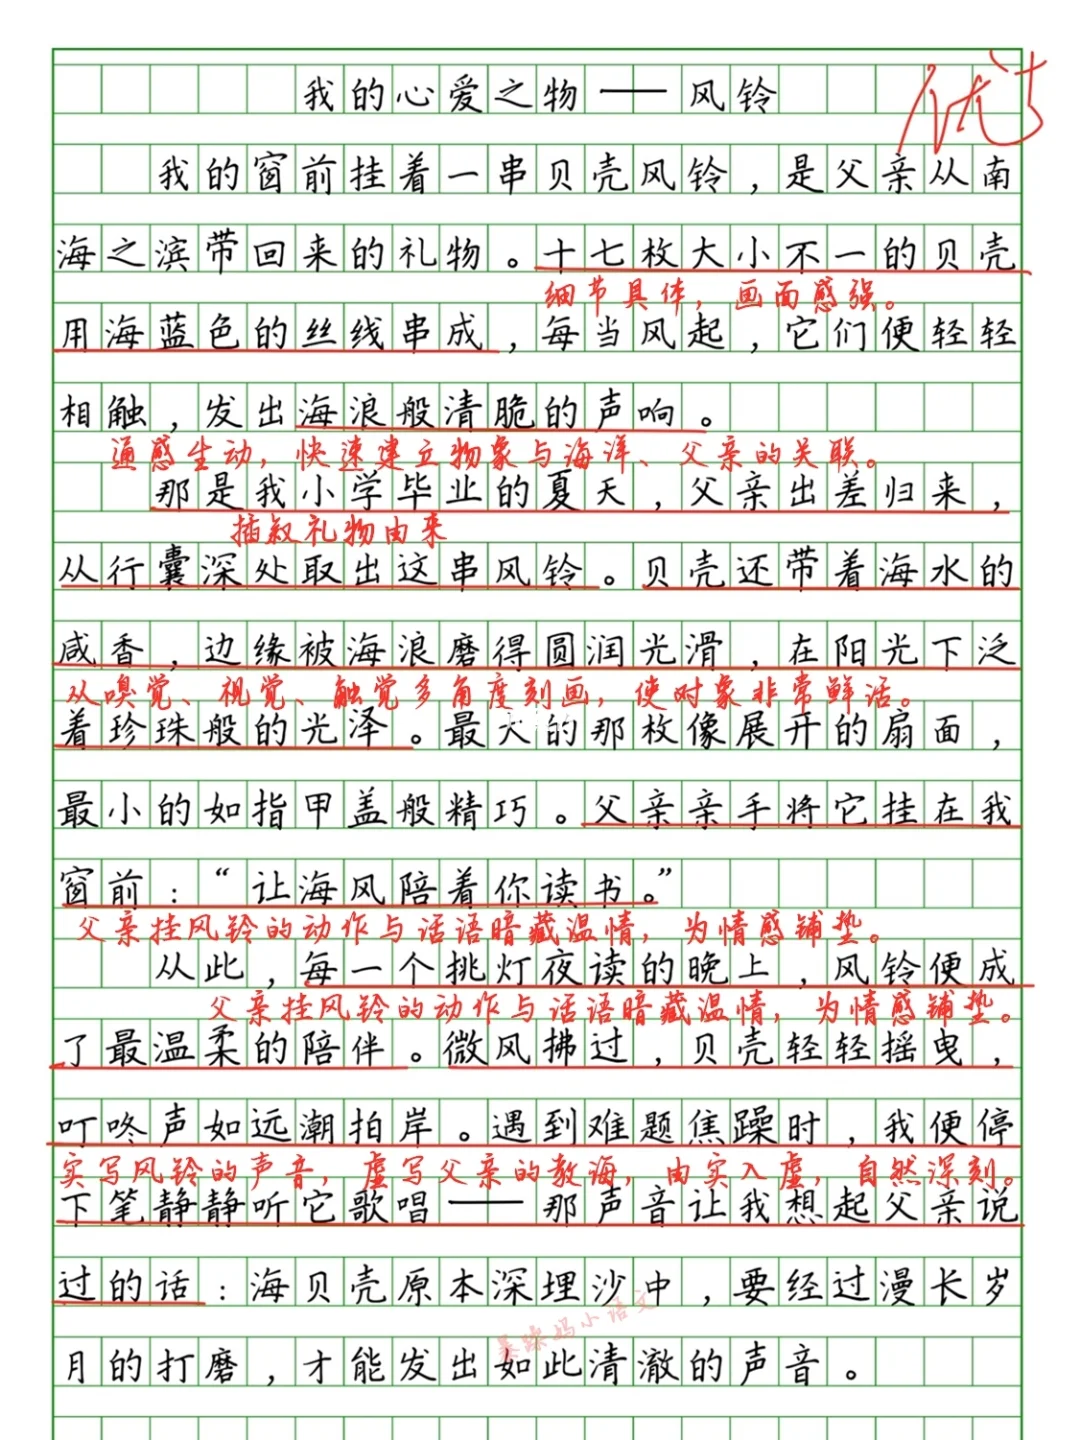 我的心爱之物——风铃
优
我的窗前挂着一串贝壳风铃，是父亲从南
海之滨带回来的礼物。十七枚大小不一的贝壳
细节具体，画面感强。
用海蓝色的丝线串成，每当风起，它们便轻轻
相触，发出海浪般清脆的声响。
通感生动，快速建立物象与海洋、父亲的关联。
那是我小学毕业的夏天，父亲出差归来，
插叙礼物由来
从行囊深处取出这串风铃。贝壳还带着海水的
咸香，边缘被海浪磨得圆润光滑，在阳光下泛
从嗅觉、视觉、触觉多角度刻画，使对象非常鲜活。
着珍珠般的光泽。最大的那枚像展开的扇面，
最小的如指甲盖般精巧。父亲亲手将它挂在我
窗前：“让海风陪着你读书。”
父亲挂风铃的动作与话语暗藏温情，为情感铺垫。
从此，每一个挑灯夜读的晚上，风铃便成
父亲挂风铃的动作与话语暗藏温情，为情感铺垫。
了最温柔的陪伴。微风拂过，贝壳轻轻摇曳，
叮咚声如远潮拍岸。遇到难题焦躁时，我便停
实写风铃的声音，虚写父亲的教诲，由实入虚，自然深刻。
下笔静静听它歌唱——那声音让我想起父亲说
过的话：海贝壳原本深埋沙中，要经过漫长岁
暴躁妈小语文
月的打磨，才能发出如此清澈的声音。